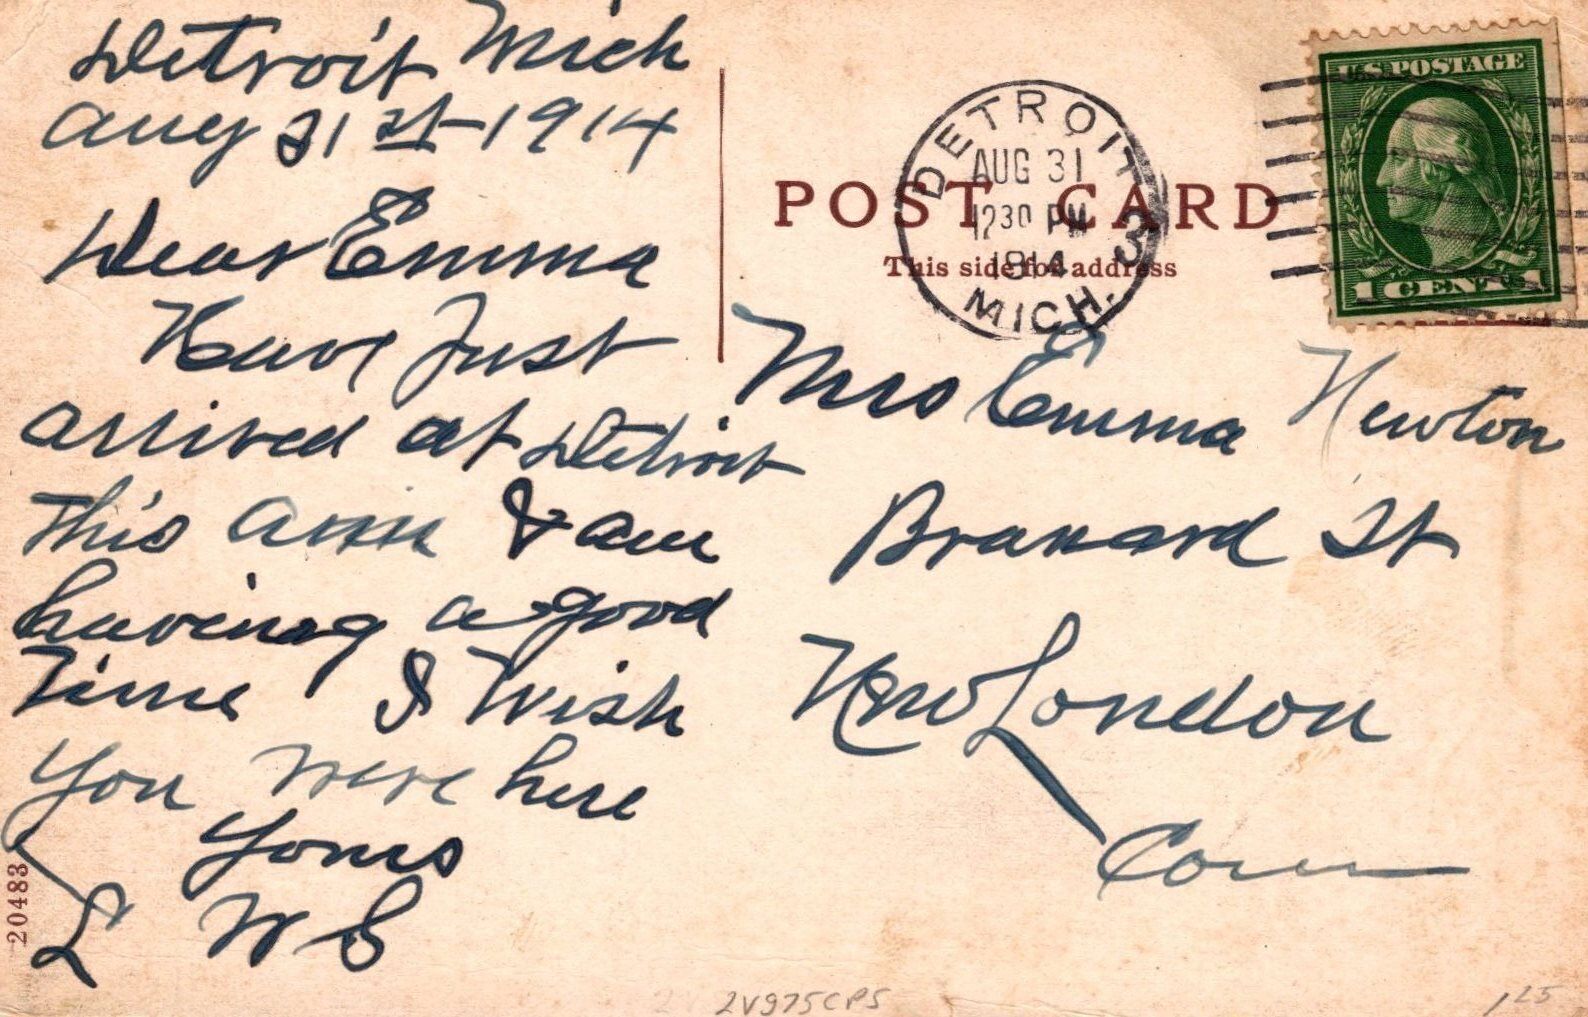 Detroit Mich
Aug 31st-1914
Dear Emma
Have Just
arrived at Detroit
This & am
having a good
Time I Wish
You were here
Yours
L W S
20483
DETROIT
AUG 31
12 30 PM
1914
MICH.
3
POST CARD
This side for address
U.S. POSTAGE
1 CENT 1
Mrs Emma Newton
Branard St
New London
Conn
2V975CPS
1 25